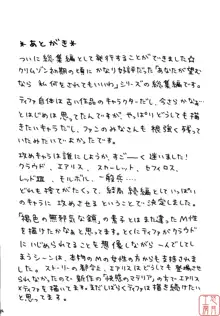 *あとがき*
ついに総集編として発行することができました☆
クリムゾン初期の頃にかなり好評だった「あなたが望む
なら 私何をされてもいいわ」シリーズの総集編です。
ティファ自体は古い作品のキャラクターだし、今さらかなぁ…
とはじめは思ってたんですが、やっぱりどうしても描き
たいキャラだし、ファンのみなさんも根強く残って
いたみたいでよかったです。
攻めキャラは誰にしようか、すごーく迷いました!
クラウド、エアリス、スカーレット、セフィロス、
レッドXIII、モルボル、一般兵…
どれも捨てがたくて、結局続編としていっぱい
のキャラに攻めさせるということで決定しました。
「褐色の無邪気な
の童子とはまた違った、M性
を描けたらなと。とくにティファがクラウド
にいじめられてることを想像しながら…んでして
しまうシーンは、本物のMの女性の方からも支持されまし
た。ストーリーの都合上、エアリスはどうしても登場させ
られなかったので、新作の「快感のマテリア」の方でエアリス
も描いてます。まだしばらくティファは描き続けたい
と思ってます。